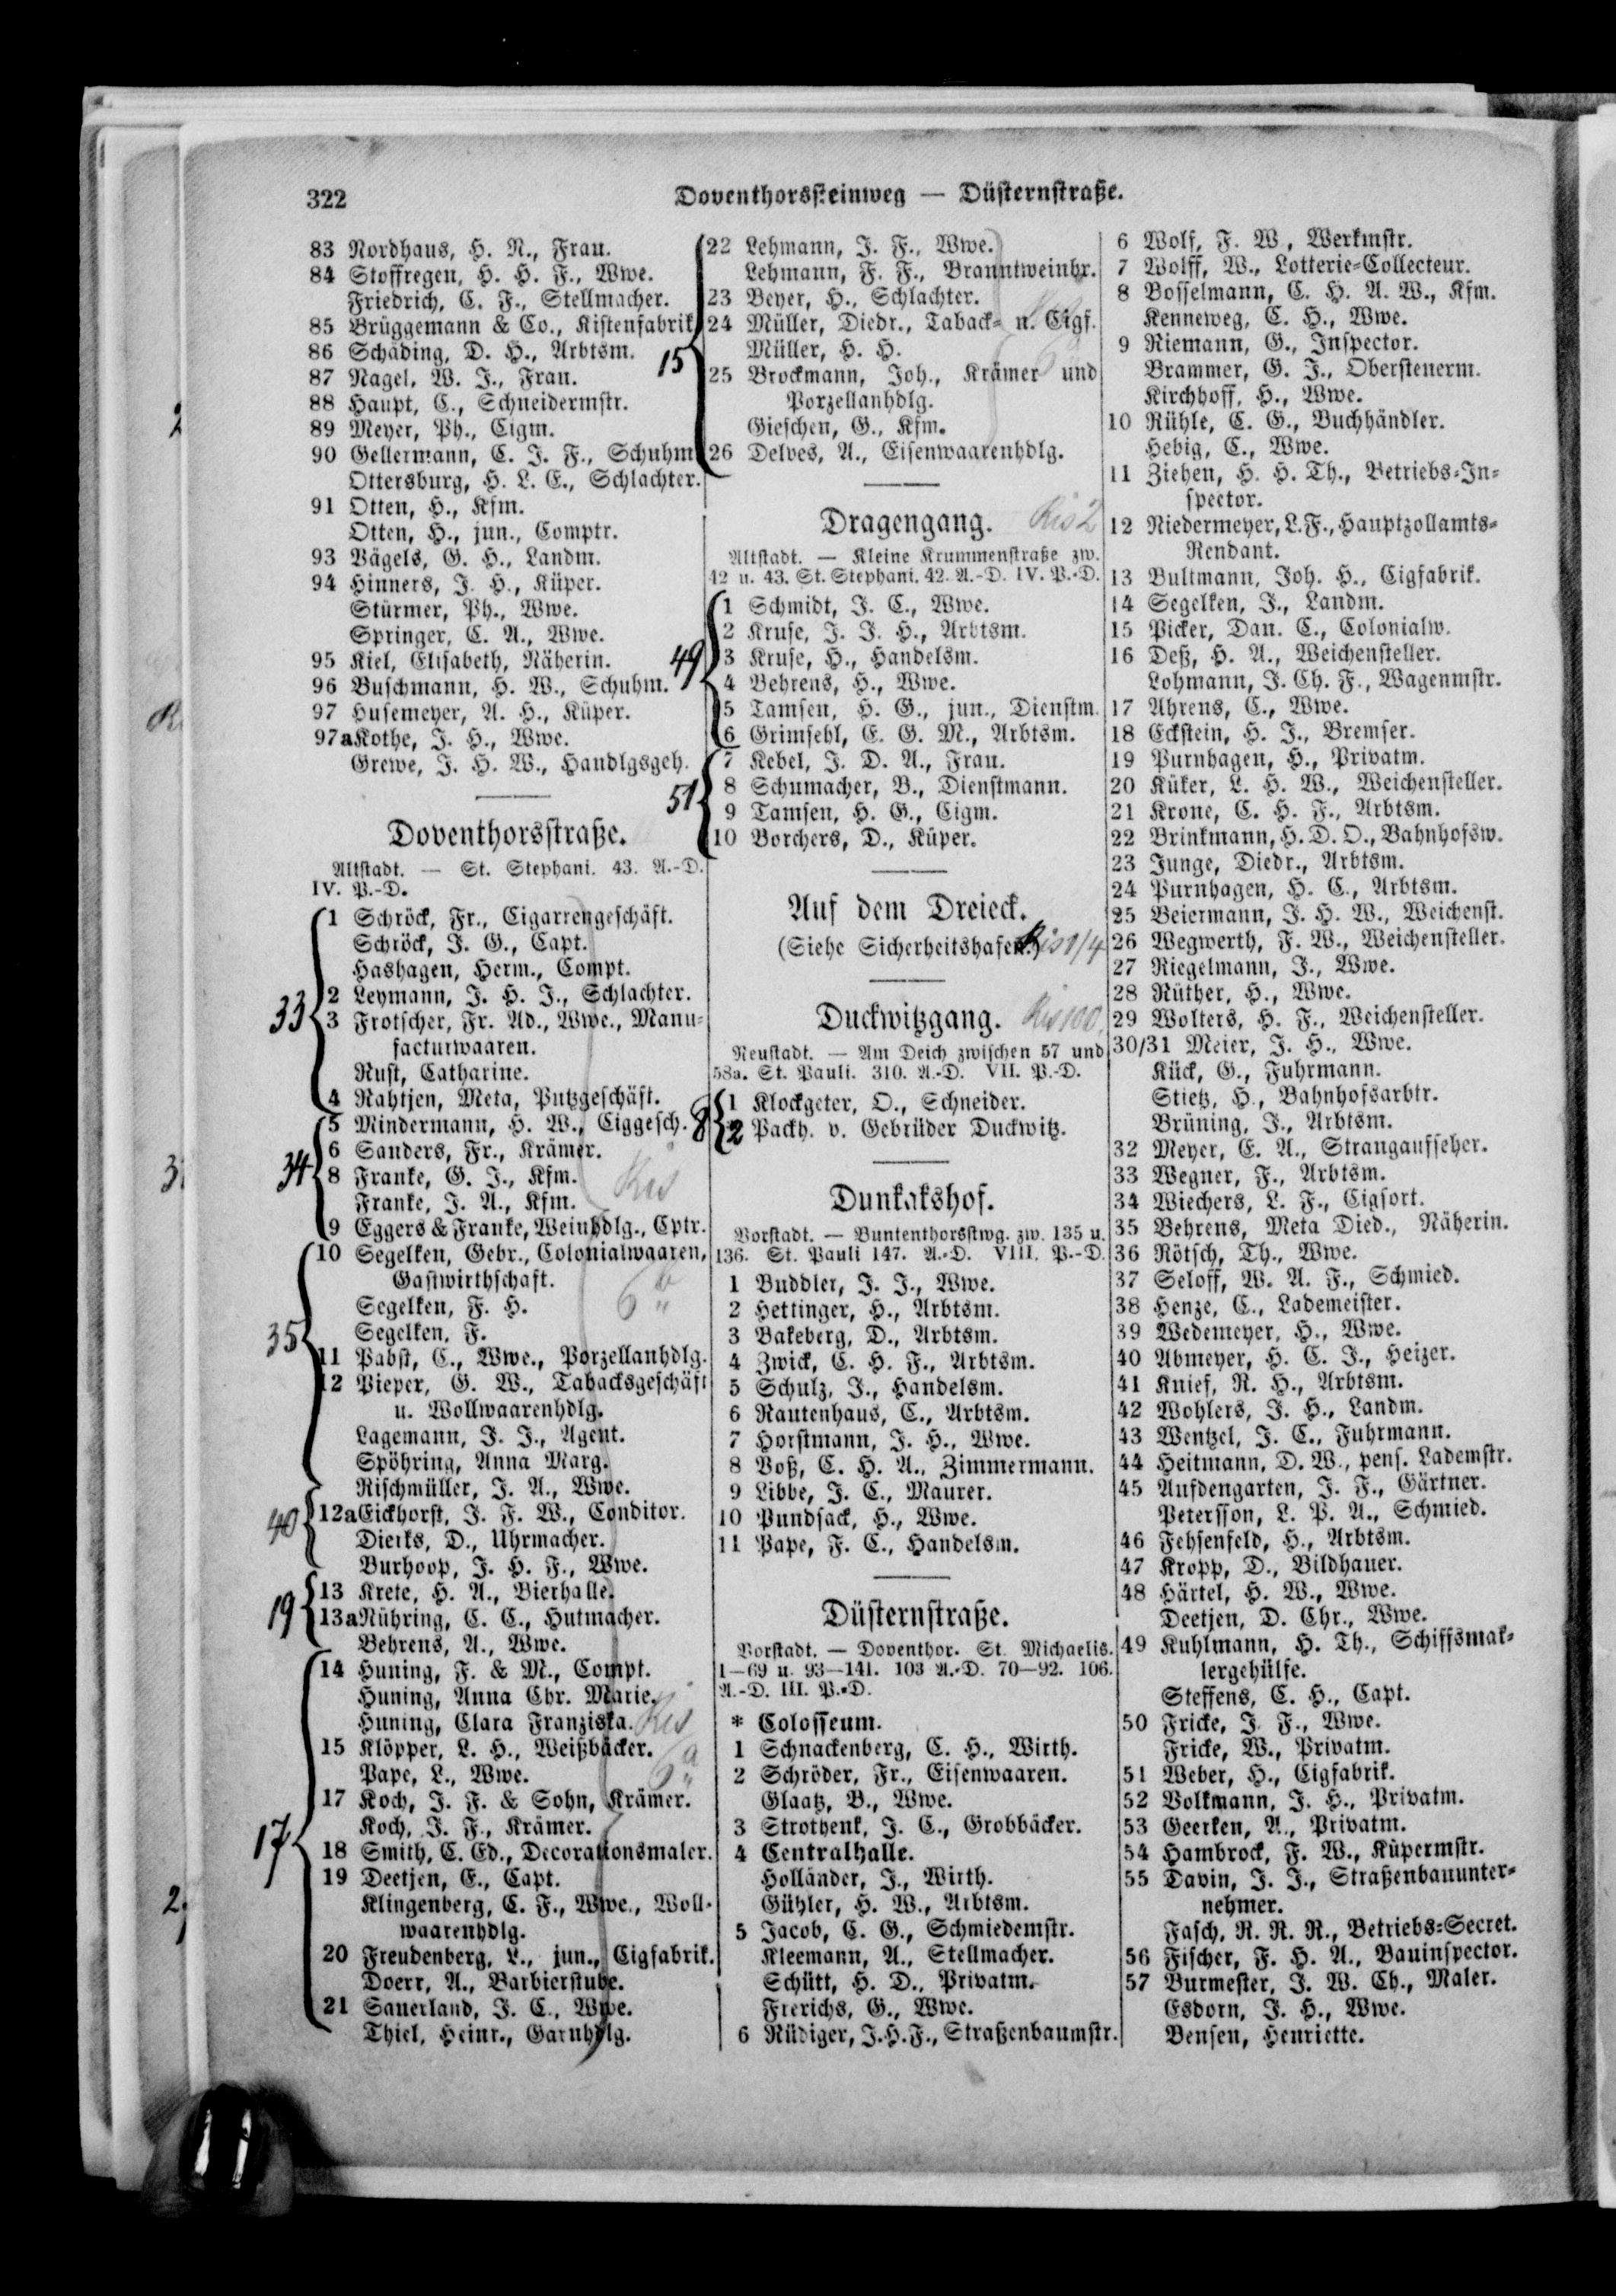 322
Doventhorssteinweg — Düsternstraße.
83 Nordhaus, H. N., Frau.
84 Stoffregen, H. H. F., Wwe.
Friedrich, C. F., Stellmacher.
85 Brüggemann & Co., Kistenfabrik
86 Schäding, D. H., Arbtsm.
87 Nagel, W. J., Frau.
88 Haupt, C., Schneidermstr.
89 Meyer, Ph., Cigm.
90 Gellermann, C. J. F., Schuhm
Ottersburg, H. L. E., Schlachter.
91 Otten, H., Kfm.
Otten, H., jun., Comptr.
93 Vägels, G. H., Landm.
94 Hinners, J. H., Küper.
Stürmer, Ph., Wwe.
Springer, C. A., Wwe.
95 Kiel, Elisabeth, Näherin.
96 Buschmann, H. W., Schuhm.
97 Husemeyer, A. H., Küper.
97a Kothe, J. H., Wwe.
Grewe, J. H. W., Handlgsgeh.
Doventhorsstraße.
Altstadt. — St. Stephani. 43. A.-D.
IV. P.-D.
1 Schröck, Fr., Cigarrengeschäft.
Schröck, J. G., Capt.
Hashagen, Herm., Compt.
2 Leymann, J. H. J., Schlachter.
33
3 Frotscher, Fr. Ad., Wwe., Manu-
facturwaaren.
Rust, Catharine.
4 Rahtjen, Meta, Putzgeschäft.
5 Mindermann, H. W., Ciggesch.
6 Sanders, Fr., Krämer.
34
8 Franke, G. J., Kfm.
Franke, J. A., Kfm.
9 Eggers & Franke, Weinhdlg., Cptr.
10 Segelken, Gebr., Colonialwaaren,
Gastwirthschaft.
Segelken, F. H.
Segelken, F.
35
11 Pabst, C., Wwe., Porzellanhdlg.
12 Pieper, G. W., Tabacksgeschäft
u. Wollwaarenhdlg.
Lagemann, J. J., Agent.
Spöhring, Anna Marg.
Rischmüller, J. A., Wwe.
40
12a Eickhorst, J. F. W., Conditor.
Dierks, D., Uhrmacher.
Burhoop, J. H. F., Wwe.
13 Krete, H. A., Bierhalle.
19
13a Rühring, C. C., Hutmacher.
Behrens, A., Wwe.
14 Huning, F. & M., Compt.
Huning, Anna Chr. Marie.
Huning, Clara Franziska.
15 Klöpper, L. H., Weißbäcker.
Pape, L., Wwe.
17 Koch, J. F. & Sohn, Krämer.
Koch, J. F., Krämer.
17
18 Smith, C. Ed., Decorationsmaler.
19 Deetjen, E., Capt.
Klingenberg, C. F., Wwe., Woll-
waarenhdlg.
20 Freudenberg, L., jun., Cigfabrik.
Doerr, A., Barbierstube.
21 Sauerland, J. C., Wwe.
Thiel, Heinr., Garnhdlg.
22 Lehmann, J. F., Wwe.
Lehmann, F. F., Branntweinbr.
23 Beyer, H., Schlachter.
24 Müller, Diedr., Taback- u. Cigf.
Müller, H. H.
15
25 Brockmann, Joh., Krämer und
Porzellanhdlg.
Gieschen, G., Kfm.
26 Delves, A., Eisenwaarenhdlg.
Dragengang.
Altstadt. — Kleine Krummenstraße zw.
42 u. 43. St. Stephani. 42. A.-D. IV. P.-D.
1 Schmidt, J. C., Wwe.
2 Kruse, J. J. H., Arbtsm.
49
3 Kruse, H., Handelsm.
4 Behrens, H., Wwe.
5 Tamsen, H. G., jun., Dienstm.
6 Grimsehl, E. G. M., Arbtsm.
7 Kebel, J. D. A., Frau.
51
8 Schumacher, B., Dienstmann.
9 Tamsen, H. G., Cigm.
10 Borchers, D., Küper.
Auf dem Dreieck.
(Siehe Sicherheitshafen.)
Duckwitzgang.
Neustadt. — Am Deich zwischen 57 und
58a. St. Pauli. 310. A.-D. VII. P.-D.
1 Klockgeter, O., Schneider.
8
2 Packh. v. Gebrüder Duckwitz.
Dunkakshof.
Vorstadt. — Buntenthorsstwg. zw. 135 u.
136. St. Pauli 147. A.-D. VIII. P.-D.
1 Buddler, J. J., Wwe.
2 Hettinger, H., Arbtsm.
3 Bakeberg, D., Arbtsm.
4 Zwick, C. H. F., Arbtsm.
5 Schulz, J., Handelsm.
6 Rautenhaus, C., Arbtsm.
7 Horstmann, J. H., Wwe.
8 Voß, C. H. A., Zimmermann.
9 Libbe, J. C., Maurer.
10 Pundsack, H., Wwe.
11 Pape, F. C., Handelsm.
Düsternstraße.
Vorstadt. — Doventhor. St. Michaelis.
1—69 u. 93—141. 103 A.-D. 70—92. 106.
A.-D. III. P.-D.
* Colosseum.
1 Schnackenberg, C. H., Wirth.
2 Schröder, Fr., Eisenwaaren.
Glaatz, B., Wwe.
3 Strothenk, J. C., Grobbäcker.
4 Centralhalle.
Holländer, J., Wirth.
Gühler, H. W., Arbtsm.
5 Jacob, C. G., Schmiedemstr.
Kleemann, A., Stellmacher.
Schütt, H. D., Privatm.
Frerichs, G., Wwe.
6 Rüdiger, J. H. F., Straßenbaumstr.
6 Wolf, F. W., Werkmstr.
7 Wolff, W., Lotterie-Collecteur.
8 Bosselmann, C. H. A. W., Kfm.
Kenneweg, C. H., Wwe.
9 Riemann, G., Inspector.
Brammer, G. J., Obersteuerm.
Kirchhoff, H., Wwe.
10 Rühle, C. G., Buchhändler.
Hebig, C., Wwe.
11 Ziehen, H. H. Th., Betriebs-In-
spector.
12 Niedermeyer, L. F., Hauptzollamts-
Rendant.
13 Bultmann, Joh. H., Cigfabrik.
14 Segelken, J., Landm.
15 Picker, Dan. C., Colonialw.
16 Deß, H. A., Weichensteller.
Lohmann, J. Ch. F., Wagenmstr.
17 Ahrens, C., Wwe.
18 Eckstein, H. J., Bremser.
19 Purnhagen, H., Privatm.
20 Küker, L. H. W., Weichensteller.
21 Krone, C. H. F., Arbtsm.
22 Brinkmann, H. D. O., Bahnhofsw.
23 Junge, Diedr., Arbtsm.
24 Purnhagen, H. C., Arbtsm.
25 Beiermann, J. H. W., Weichenst.
26 Wegwerth, F. W., Weichensteller.
27 Riegelmann, J., Wwe.
28 Rüther, H., Wwe.
29 Wolters, H. F., Weichensteller.
30/31 Meier, J. H., Wwe.
Kück, G., Fuhrmann.
Stietz, H., Bahnhofsarbtr.
Brüning, J., Arbtsm.
32 Meyer, E. A., Strangaufseher.
33 Wegner, F., Arbtsm.
34 Wiechers, L. F., Cigsort.
35 Behrens, Meta Died., Näherin.
36 Rötsch, Th., Wwe.
37 Seloff, W. A. F., Schmied.
38 Henze, C., Lademeister.
39 Wedemeyer, H., Wwe.
40 Abmeyer, H. C. J., Heizer.
41 Knief, R. H., Arbtsm.
42 Wohlers, J. H., Landm.
43 Wentzel, J. C., Fuhrmann.
44 Heitmann, D. W., pens. Lademstr.
45 Aufdengarten, J. F., Gärtner.
Petersson, L. P. A., Schmied.
46 Fehsenfeld, H., Arbtsm.
47 Kropp, D., Bildhauer.
48 Härtel, H. W., Wwe.
Deetjen, D. Chr., Wwe.
49 Kuhlmann, H. Th., Schiffsmak-
lergehülfe.
Steffens, C. H., Capt.
50 Fricke, J. F., Wwe.
Fricke, W., Privatm.
51 Weber, H., Cigfabrik.
52 Volkmann, J. H., Privatm.
53 Geerken, A., Privatm.
54 Hambrock, F. W., Küpermstr.
55 Davin, J. J., Straßenbauunter-
nehmer.
Fasch, R. R. R., Betriebs-Secret.
56 Fischer, F. H. A., Bauinspector.
57 Burmester, J. W. Ch., Maler.
Esdorn, J. H., Wwe.
Bensen, Henriette.